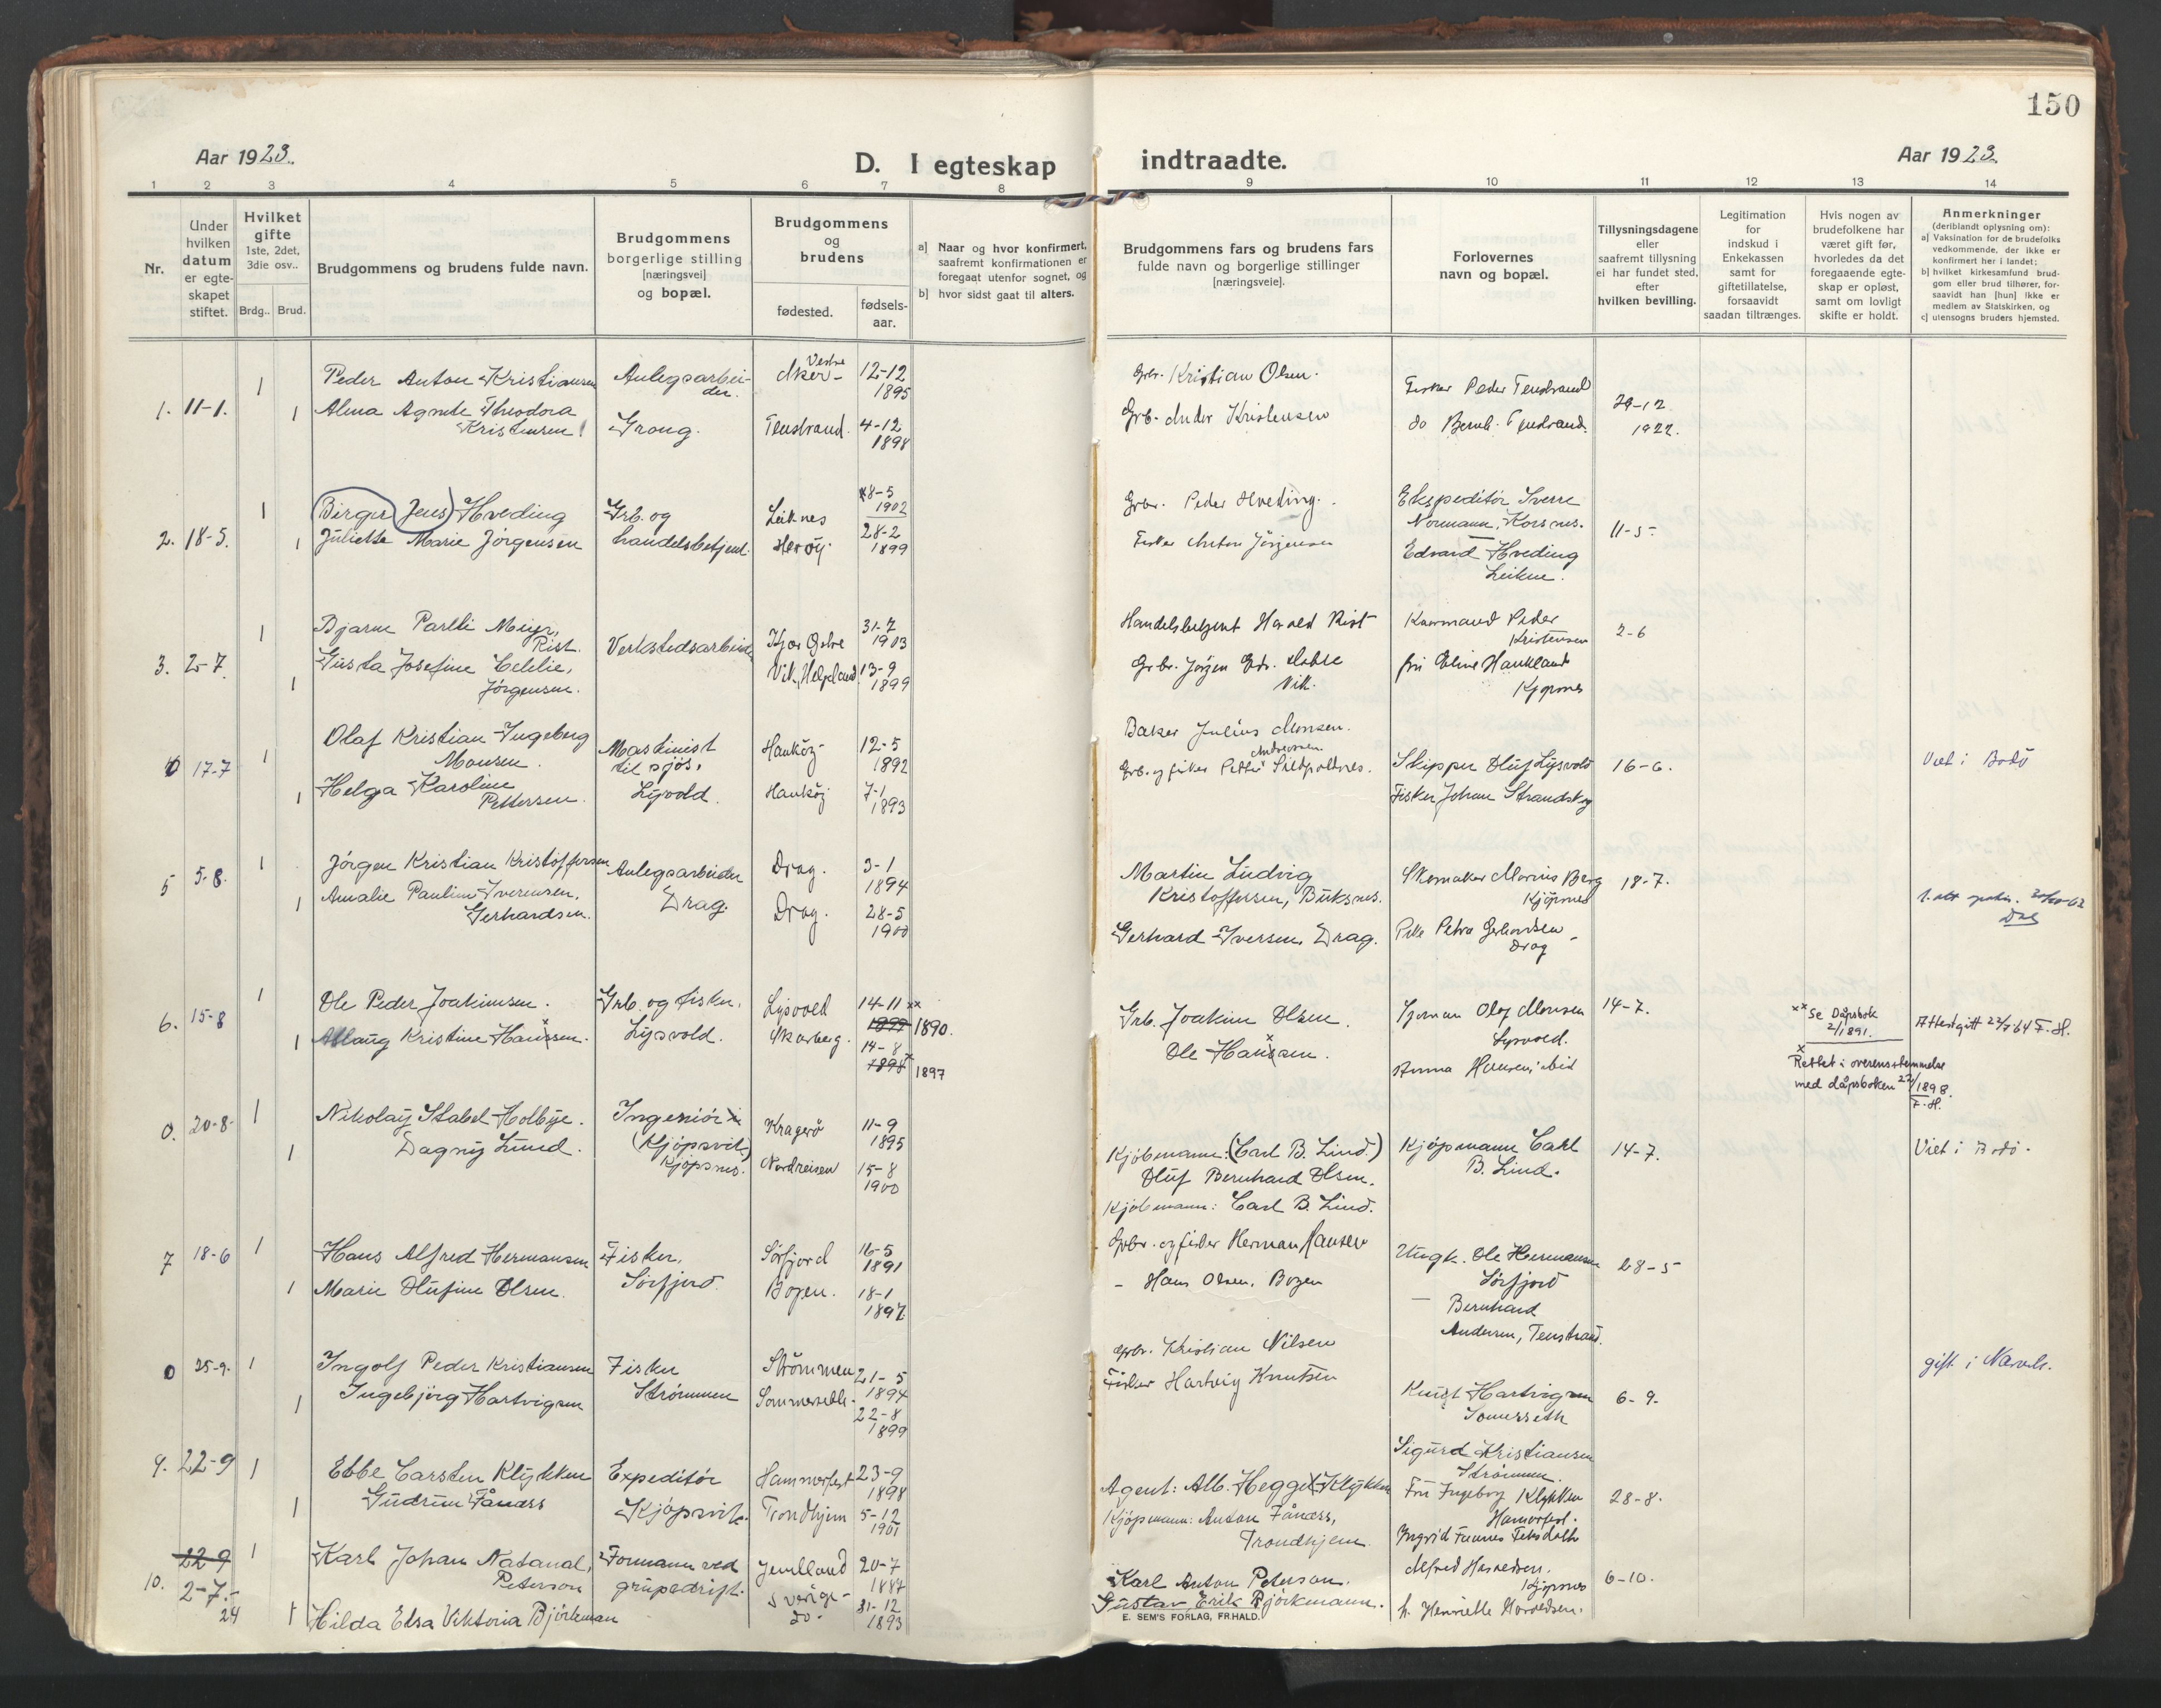 150
Aar 1923.
D. I egteskap indtraadte.
Aar 1923.
1 2 3 4 5 6 7 8 9 10 11 12 13 14
Nr.
Under hvilken datum er egte- skapet stiftet.
Hvilket gifte 1ste, 2det, 3die osv..
Brdg.. Brud.
Brudgommens og brudens fulde navn.
Brudgommens borgerlige stilling [næringsvei] og bopæl.
Brudgommens og brudens
fødested. fødsels- aar.
a] Naar og hvor konfirmert, saafremt konfirmationen er foregaat utenfor sognet, og
b] hvor sidst gaat til alters.
Brudgommens fars og brudens fars fulde navn og borgerlige stillinger [næringsveie].
Forlovernes navn og bopæl.
Tillysningsdagene eller saafremt tillysning ei har fundet sted, efter hvilken bevilling.
Legitimation for indskud i Enkekassen samt for giftetillatelse, forsaavidt saadan tiltrænges.
Hvis nogen av brudefolkene har været gift før, hvorledes da det foregaaende egte- skap er opløst, samt om lovligt skifte er holdt.
Anmerkninger (deriblandt oplysning om):
a] Vaksination for de brudefolks vedkommende, der ikke er konfirmert her i landet;
b] hvilket kirkesamfund brud- gom eller brud tilhører, for- saavidt han [hun] ikke er medlem av Statskirken, og
c] utensogns bruders hjemsted.
1. 11-1. 1 Peder Anton Kristiansen Anlegsarbei- der. Vestre Aker- 12-12 1895 Grbr. Kristian Olsen. Fisker Peder Tenstrand 29-12 1922.
1 Alma Agnete Theodora Kristensen Grong. Tenstrand. 4-12 1898 Grb. Ander Kristensen do Bernh. Tenstrand.
2. 18-5. 1 Birger (Jens) Hveding Grb. og Leiknes 8-5 1902 Grbr. Peder Hveding. Ekspeditör Sverre Normann, Korsnes. 11-5-
1 Juliette Marie Jörgensen handelsbetjent. Heröy. 28-2 1899 Fisker Anton Jörgensen Edvard Hveding
3. 2-7. 1 Bjarne Parelli Meyer Rist. Verkstedsarbeider 31-7 1903 Handelsbetjent Harald Rist Peder Kristensen 2-6
1 Gusta Josefine Jörgensen. Vik, Helgeland 13-9 1899 Grbr. Jörgen Edv. Vik. fru Eline Haukland Kjöpsnes
0 17-7 1 Olaf Kristian Ingeberg Monsen. Maskinist til sjös, 12-5 1892 Baker Julius Monsen. Skipper Oluf Lysvold 16-6. Viet i Bodö
1 Helga Karoline Pettersen. Lysvold. 7-1 1893 Grb. og fisker Petter Andreassen Fisker Johan Strandskog
5 5-8. 1 Jörgen Kristian Kristoffersen Anlegsarbeider Drag. 3-1 1894 Martin Ludvig Kristoffersen, Buksnes. Skomaker Marius Berg Kjöpsnes 18-7.
1 Amalie Pauline Iverensen, Gerhardsen. Drag. Drag. 28-5 1900 Gerhard Iversen, Drag. Petra Gerhardsen Drag
6. 15-8 1 Ole Peder Joakimsen. Grb. og fisker. Lysvold 14-11 xx 1899 1890. Grb. Joakim Olsen. Olaf Monsen Lysvold. 14-7. xx Se Dåpsbok 2/1891.
1 Aslaug Kristine Hansen. Lysvold. Skarberg. 14-8 1898 x 1897 Ole Hansen. Anna Hansen, ibid x Rettet i overensstemmelse med dåpsboken 1898. F.H.
0. 20-8- 1 Nikolay Stabel-Holbye. Ingeniör Kragerö 11-9 1895 Kjöbmann: (Carl B. Lind.) Oluf Bernhard Olsen. Kjöpmann Carl B. Lind. 14-7. Viet i Bodö.
1 Dagny Lund. (Kjöpsvik) Kjöpsnes. Nordreisen 15-8 1900 Kjöbmann: Carl B. Lind.
7 18-6 1 Hans Alfred Hermansen Fisker, Sörfjord 16-5 1891 Grbr. og fisker Herman Hansen Ungk. Ole Hermansen Sörfjord 28-5
1 Marie Olufine Olsen. Sörfjord. Bogen. 18-1 1897 - Hans Olsen, Bogen - Bernhard Andersen, Tenstrand.
0 25-9. 1 Ingolf Peder Kristiansen Fisker Strömmen 21-5 1894 Grbr. Kristian Nilsen Knut Hartvigsen 6-9. gift i Narvik.
1 Ingebjörg Hartvigsen Strömmen Sommerseth. 22-8 1899 Fisker Hartvig Knutsen Sigurd Kristiansen Strömmen.
9. 22-9 1 Ebbe Carsten Klykken Expeditör Hammerfest 23-9 1898 Agent: Alb. Hegge Klykken Fru Ingeborg Klykken 28-8.
1 Gudrun Fånæss Kjöpsvik. Trondhjem 5-12 1901 Kjöpmann: Anton Fånæss, Trondhjem.
10. 22-9 2-7- 24 1 Karl Johan Natanael, Peterson Formann ved grubedrift. Jemtland 20-7 Karl Anton Peterson. Kjöpsnes 6-10.
1 Hilda Elsa Viktoria Björkman Sverige do. 31-12 1893 Gustav Erik Björkmann.
E. SEM'S FORLAG, FR.HALD.